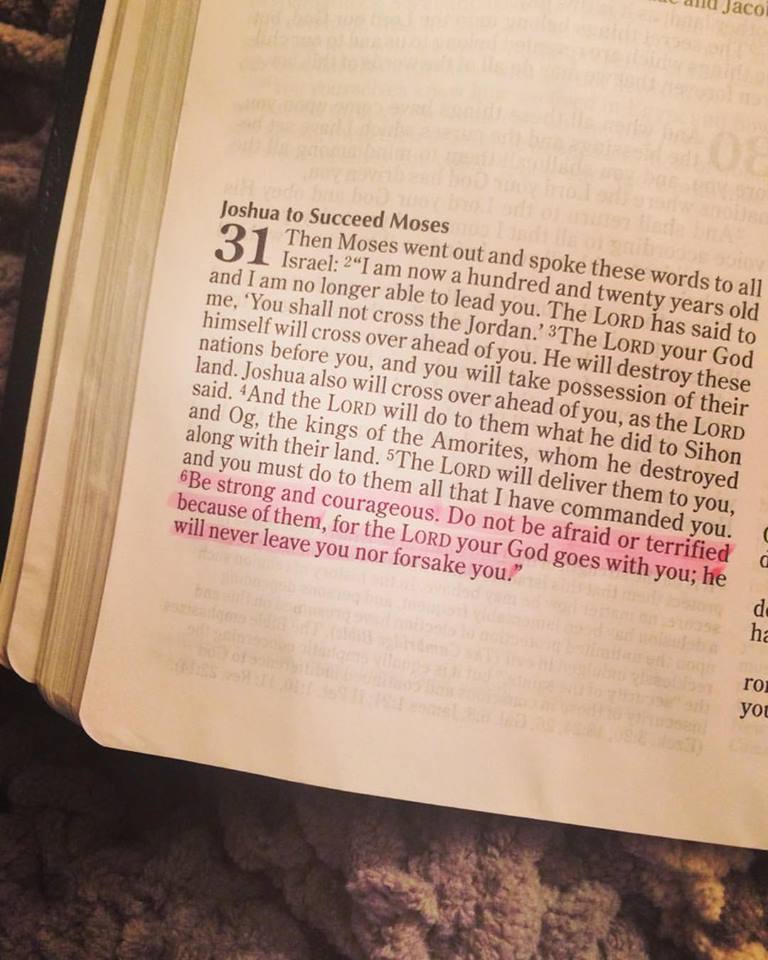 and Jaco
Joshua to Succeed Moses
31 Then Moses went out and spoke these words to all
Israel: 2“I am now a hundred and twenty years old
and I am no longer able to lead you. The LORD has said to
me, ‘You shall not cross the Jordan.’ 3The LORD your God
himself will cross over ahead of you. He will destroy these
nations before you, and you will take possession of their
land. Joshua also will cross over ahead of you, as the LORD
said. 4And the LORD will do to them what he did to Sihon
and Og, the kings of the Amorites, whom he destroyed
along with their land. 5The LORD will deliver them to you,
and you must do to them all that I have commanded you.
6Be strong and courageous. Do not be afraid or terrified
because of them, for the LORD your God goes with you; he
will never leave you nor forsake you.”